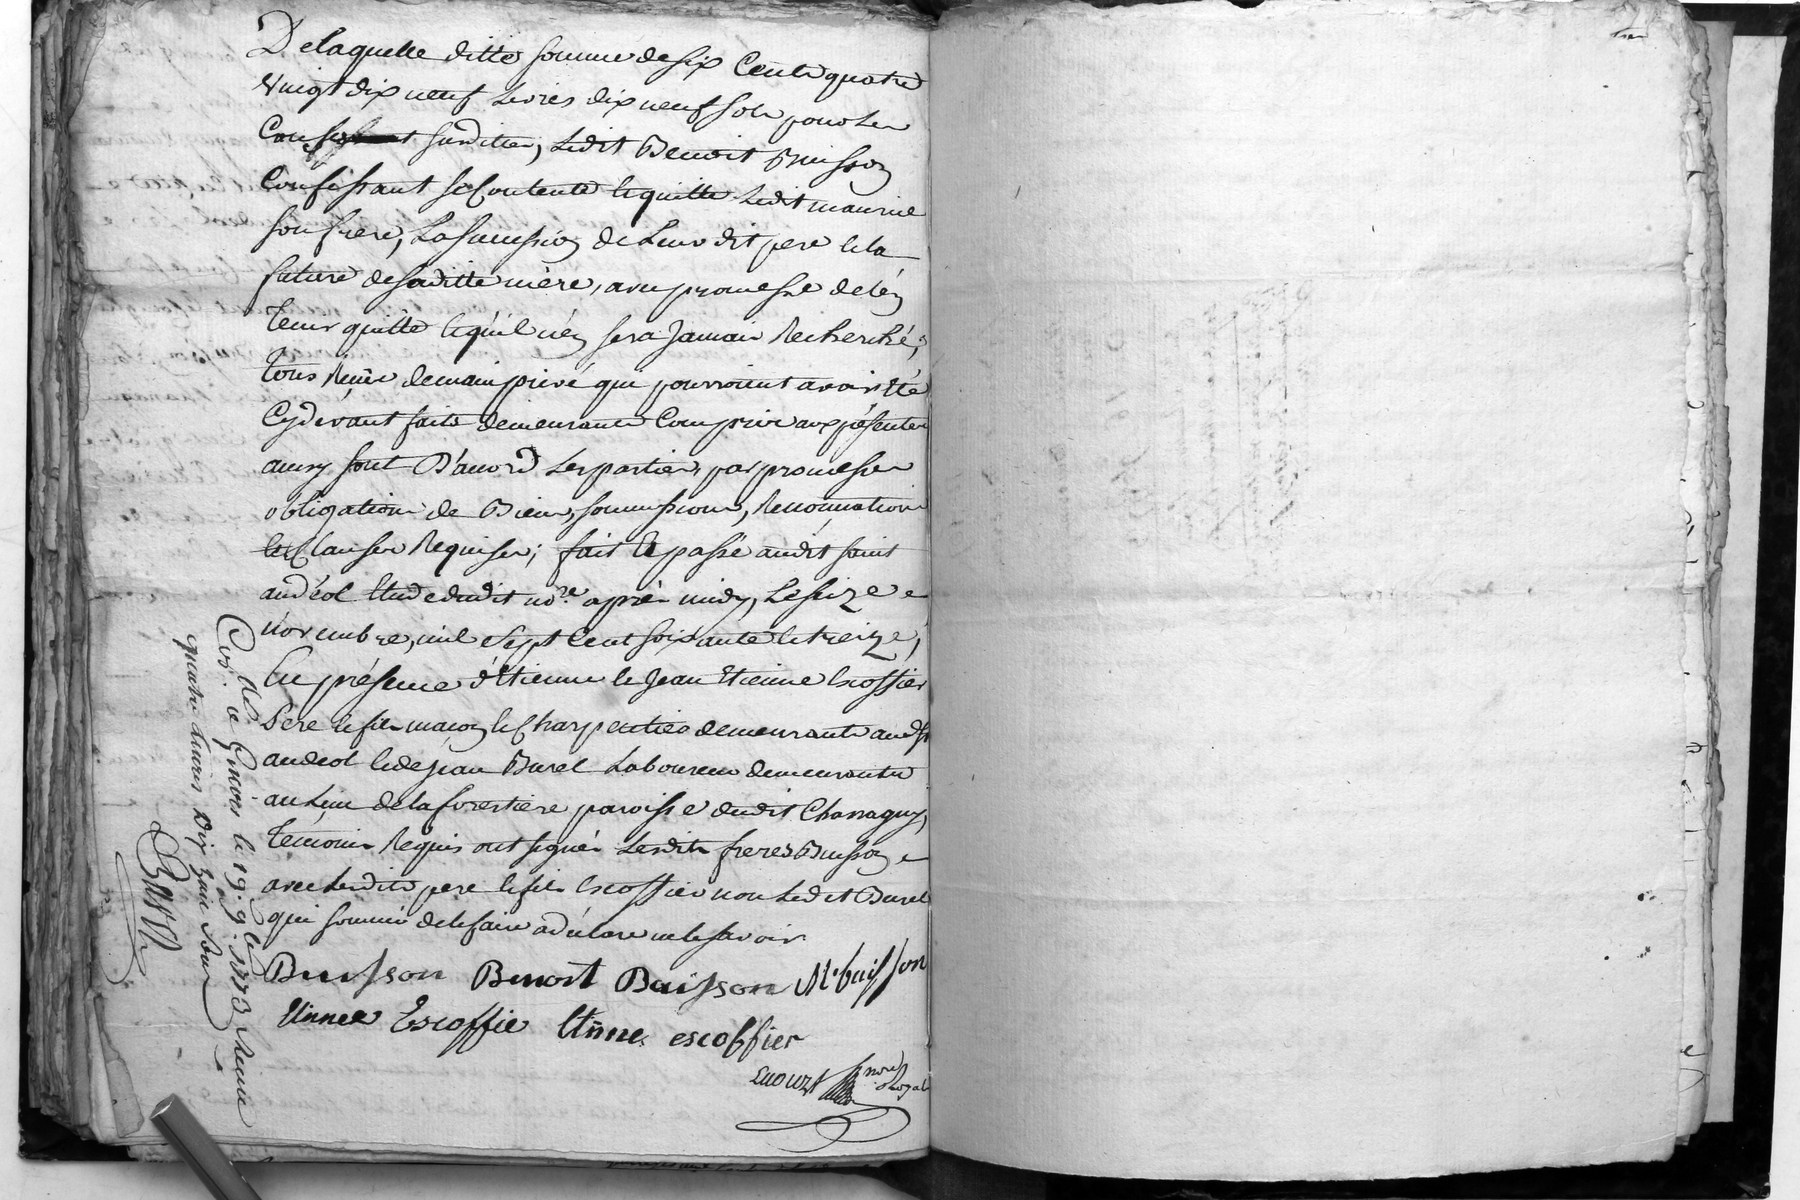 Delaquelle ditte somme de six Cents quatre
vingt dix neuf Livres dix neuf sols pour les
susdittes, Ledit Benoit Buisson
Confessant se Contente & quitte Ledit maurice
son frere, La succession de Leur dit pere & la
future de saditte mère, avec promesse de l'en
tenir quitte & qu'il n'en sera Jamais Recherché;
tous Reçus de main privé qui pourroient avoir été
Cy devant faits demeurants Compris aux présentes
ainsy sont D'accord Les parties, par promesses
obligations de Biens, soumissions, Renonciations
& Clauses Requises; fait & passé audit saint
andéol Etude dudit nore. après midy, Le seize
novembre, mil sept Cent soixante & treize,
En présence d'Etienne & Jean Etienne Escoffier
Pere & fils maçon & Charpentier demeurants aud. st
andeol & de jean Burel Laboureur demeurants
au Lieu de la forestière paroisse dudit Chassagny,
temoins Requis ont signés Lesdits freres Buisson
avec Lesdits pere & fils Escoffier non Ledit Burel
qui sommé de le faire a déclaré ne le savoir
Buisson Benoit Buisson M. buisson
Etinnee Escoffie Etinne escoffier
nore
Royal
Con. a Givors le 19. 9. 1773 Receu
quatre Livres Dix huit sous